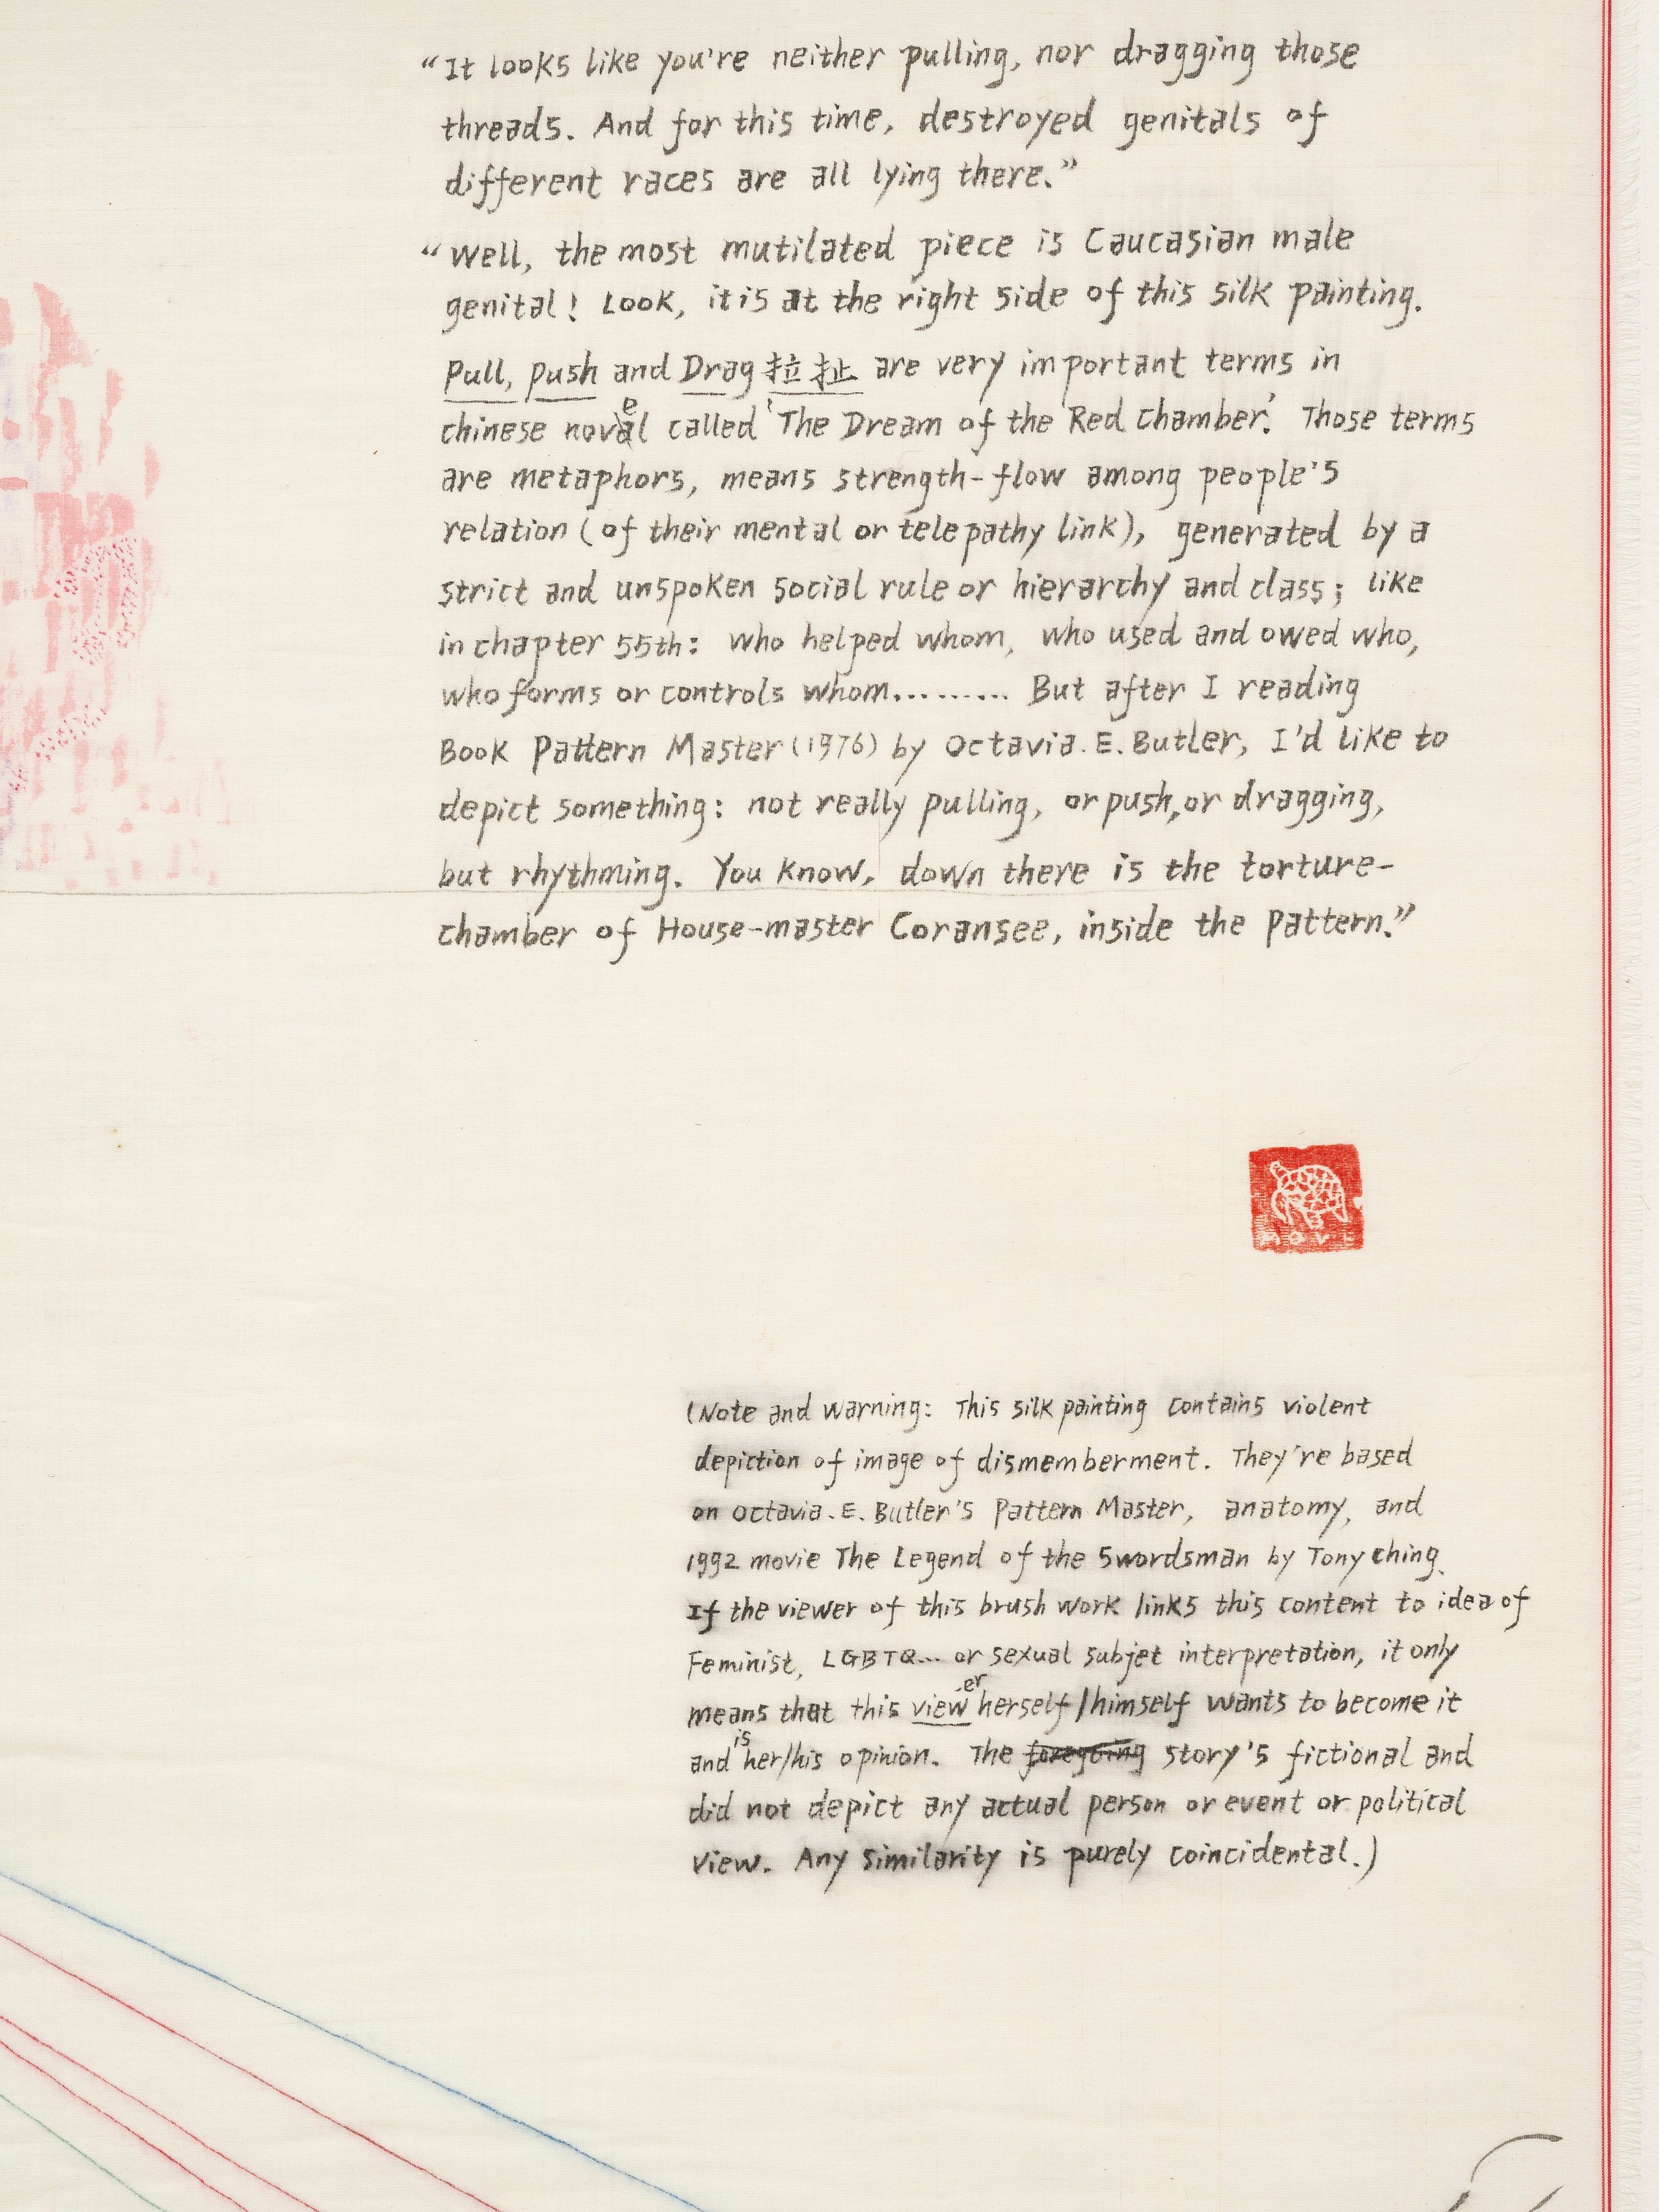 “It looks like you're neither pulling, nor dragging those
threads. And for this time, destroyed genitals of
different races are all lying there.”
“Well, the most mutilated piece is Caucasian male
genital! Look, it is at the right side of this silk painting.
Pull, push and Drag 拉扯 are very important terms in
chinese novel called 'The Dream of the Red Chamber.' Those terms
are metaphors, means strength-flow among people's
relation (of their mental or telepathy link), generated by a
strict and unspoken social rule or hierarchy and class; like
in chapter 55th: who helped whom, who used and owed who,
who forms or controls whom......... But after I reading
Book Pattern Master (1976) by Octavia.E.Butler, I'd like to
depict something: not really pulling, or push, or dragging,
but rhythming. You know, down there is the torture-
chamber of House-master Coransee, inside the Pattern.”
MOVE
(Note and warning: This silk painting contains violent
depiction of image of dismemberment. They're based
on Octavia.E.Butler's Pattern Master, anatomy, and
1992 movie The Legend of the Swordsman by Tony ching.
If the viewer of this brush work links this content to idea of
Feminist, LGBTQ... or sexual subjet interpretation, it only
means that this viewer herself/himself wants to become it
and is her/his opinion. The foregoing story's fictional and
did not depict any actual person or event or political
view. Any similarity is purely coincidental.)